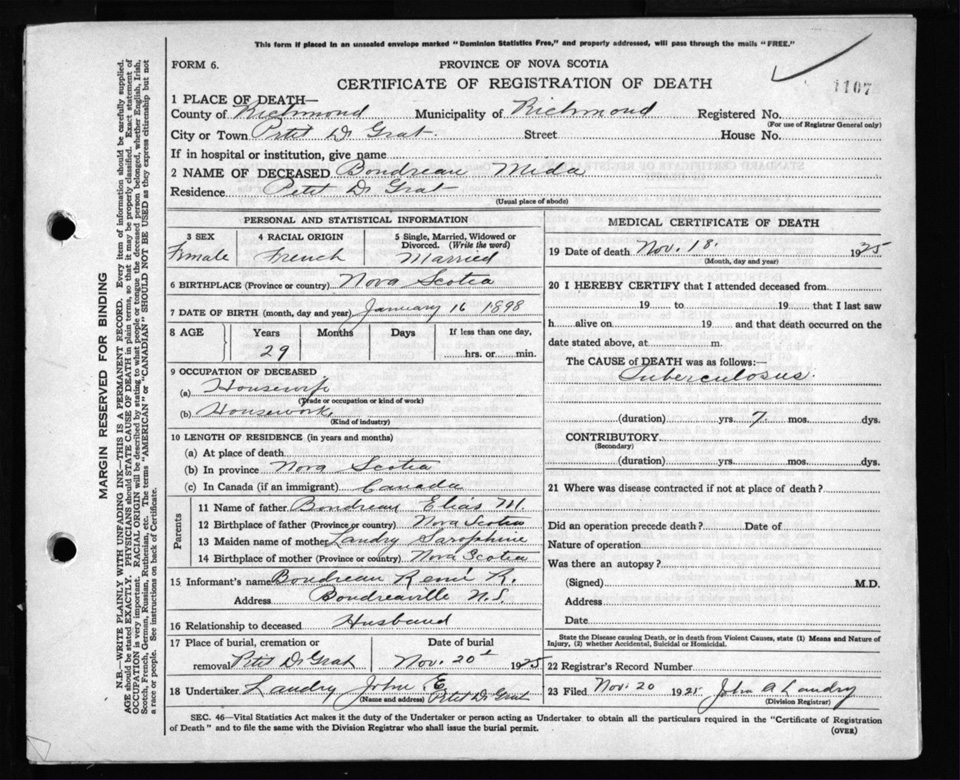 This form if placed in an unsealed envelope marked "Dominion Statistics Free," and properly addressed, will pass through the mails "FREE."
FORM 6.
PROVINCE OF NOVA SCOTIA
CERTIFICATE OF REGISTRATION OF DEATH
1107
1 PLACE OF DEATH—
County of Richmond Municipality of Richmond Registered No.
(For use of Registrar General only)
City or Town Petit D Grat. Street House No.
If in hospital or institution, give name
2 NAME OF DECEASED Boudreau Mida
Residence Petit D Grat
(Usual place of abode)
PERSONAL AND STATISTICAL INFORMATION
3 SEX 4 RACIAL ORIGIN 5 Single, Married, Widowed or
Divorced. (Write the word)
Female French Married
6 BIRTHPLACE (Province or country) Nova Scotia
7 DATE OF BIRTH (month, day and year) January 16 1898
8 AGE Years Months Days If less than one day,
29 hrs. or min.
9 OCCUPATION OF DECEASED
(a) Housewife
(Trade or occupation or kind of work)
(b) Housework
(Kind of industry)
10 LENGTH OF RESIDENCE (in years and months)
(a) At place of death
(b) In province Nova Scotia
(c) In Canada (if an immigrant) Canada
Parents
11 Name of father Boudreau Elias M.
12 Birthplace of father (Province or country) Nova Scotia
13 Maiden name of mother Landry Sarophine
14 Birthplace of mother (Province or country) Nova Scotia
15 Informant's name Boudreau Remi R.
Address Boudreauville N.S.
16 Relationship to deceased Husband
17 Place of burial, cremation or Date of burial
removal Petit D Grat Nov. 20t 1925
18 Undertaker Landry John E Petit D Grat
(Name and address)
MEDICAL CERTIFICATE OF DEATH
19 Date of death Nov. 18. 1925
(Month, day and year)
20 I HEREBY CERTIFY that I attended deceased from
19 to 19 that I last saw
h alive on 19 and that death occurred on the
date stated above, at m.
The CAUSE of DEATH was as follows:—
Tuberculosus.
(duration) yrs. 7 mos. dys.
CONTRIBUTORY
(Secondary)
(duration) yrs. mos. dys.
21 Where was disease contracted if not at place of death?
Did an operation precede death? Date of
Nature of operation
Was there an autopsy?
(Signed) M.D.
Address
Date
State the Disease causing Death, or in death from Violent Causes, state (1) Means and Nature of
Injury, (2) whether Accidental, Suicidal or Homicidal.
22 Registrar's Record Number
23 Filed Nov. 20 1925 John A Landry
(Division Registrar)
SEC. 46—Vital Statistics Act makes it the duty of the Undertaker or person acting as Undertaker to obtain all the particulars required in the "Certificate of Registration
of Death" and to file the same with the Division Registrar who shall issue the burial permit.
(OVER)
MARGIN RESERVED FOR BINDING
N.B.—WRITE PLAINLY WITH UNFADING INK—THIS IS A PERMANENT RECORD. Every item of information should be carefully supplied.
AGE should be stated EXACTLY. PHYSICIANS should STATE CAUSE OF DEATH in plain terms, so that it may be properly classified. Exact statement of
OCCUPATION is very important. RACIAL ORIGIN will be described by stating to what people or tongue the deceased person belonged, whether English, Irish,
Scotch, French, German, Russian, Ruthenian, etc. The terms "AMERICAN" or "CANADIAN" SHOULD NOT BE USED as they express citizenship but not
a race or people. See instructions on back of Certificate.